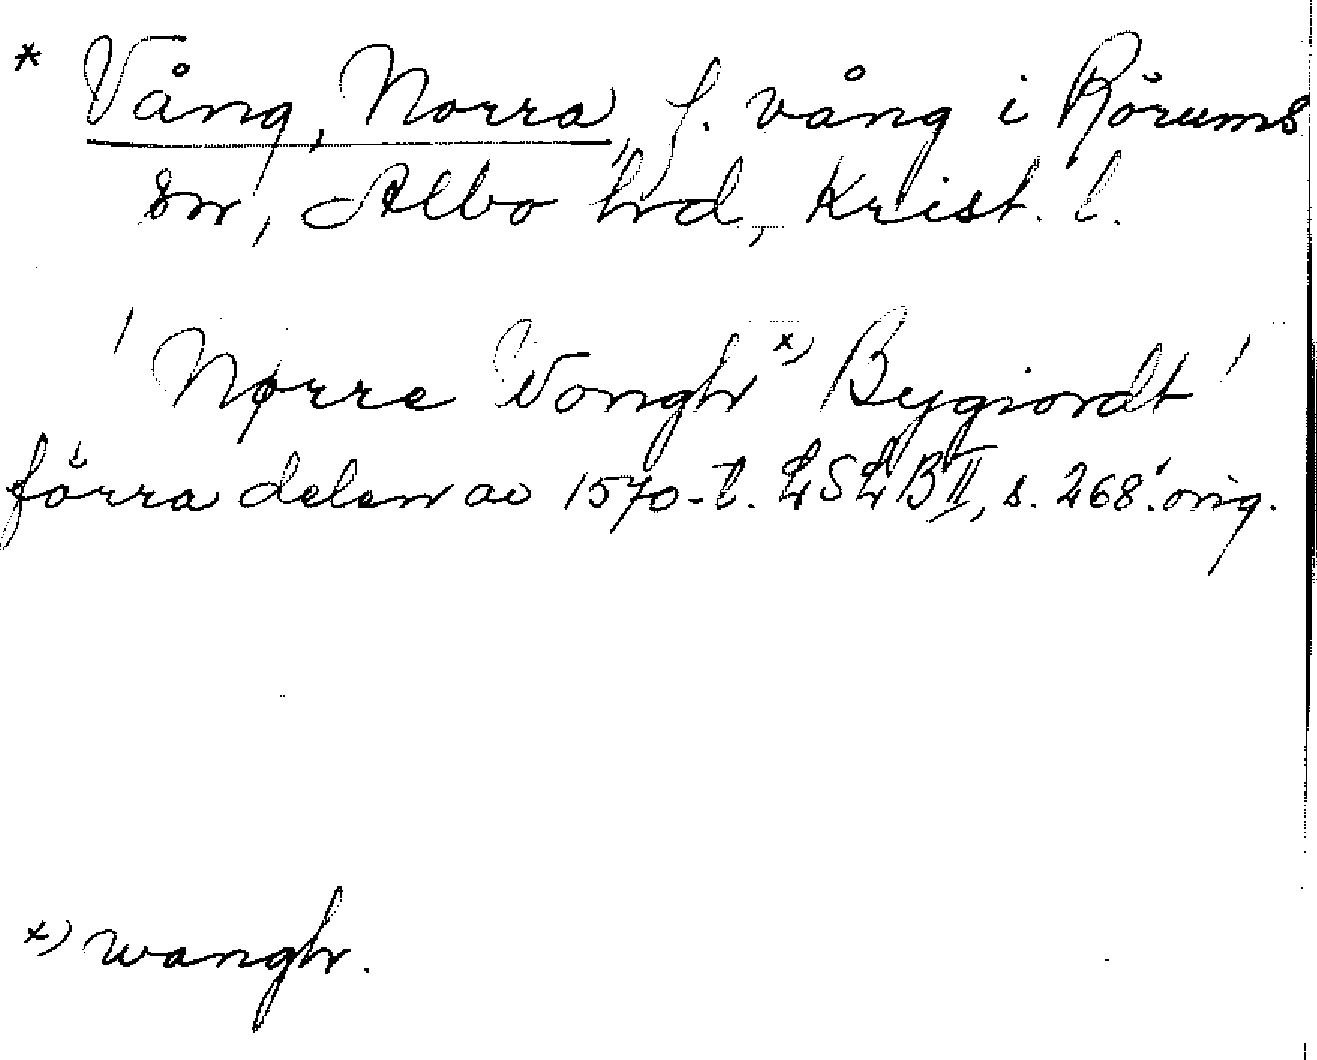 * Vång, Norra, f. vång i Rörums
sn, Albo hd, Krist. l.
' Nørre Vongh x) Bygiordt '
förra delen av 1570-t. LSLB II, s. 268. orig.
x) wangh.